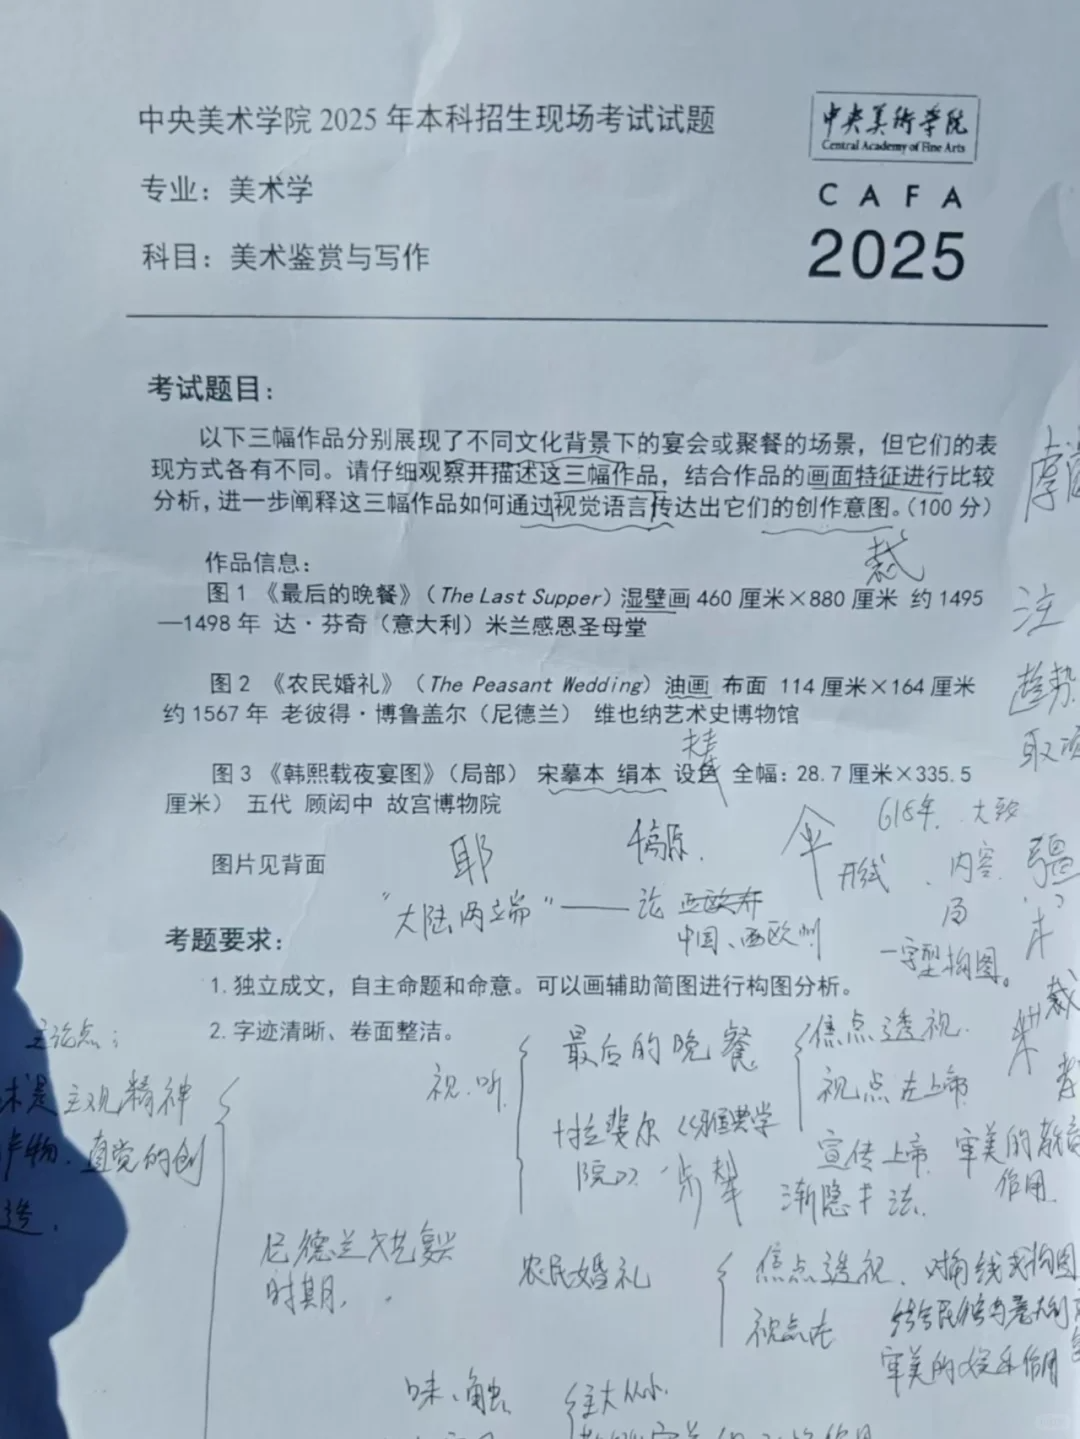 中央美术学院 2025 年本科招生现场考试试题
中央美術学院
Central Academy of Fine Arts
专业：美术学
CAFA
科目：美术鉴赏与写作
2025
考试题目：
以下三幅作品分别展现了不同文化背景下的宴会或聚餐的场景，但它们的表
现方式各有不同。请仔细观察并描述这三幅作品，结合作品的画面特征进行比较
分析，进一步阐释这三幅作品如何通过视觉语言传达出它们的创作意图。（100 分）
作品信息：
图 1 《最后的晚餐》（The Last Supper）湿壁画 460 厘米×880 厘米 约 1495
—1498 年 达·芬奇（意大利）米兰感恩圣母堂
注
图 2 《农民婚礼》（The Peasant Wedding）油画 布面 114 厘米×164 厘米
趋势
约 1567 年 老彼得·博鲁盖尔（尼德兰） 维也纳艺术史博物馆
图 3 《韩熙载夜宴图》（局部） 宋摹本 绢本 设色 全幅：28.7 厘米×335.5
厘米） 五代 顾闳中 故宫博物院
618年、大致
图片见背面
耶
伞
形线、内容
局
"大陆两端"——论
中国、西欧州
一字型构图。
考题要求：
1. 独立成文，自主命题和命意。可以画辅助简图进行构图分析。
2. 字迹清晰、卷面整洁。
主论点：
术是主观精神
产物、直觉的创
造.
视、听
最后的晚餐
焦点透视.
视点在上帝
拉斐尔《雅典学
院》
宣传上帝 审美的教育
作用
渐隐手法.
尼德兰文艺复兴
时期、
农民婚礼
焦点透视、对角线式构图
视点在
审美的娱乐作用
味、触
主大从小.